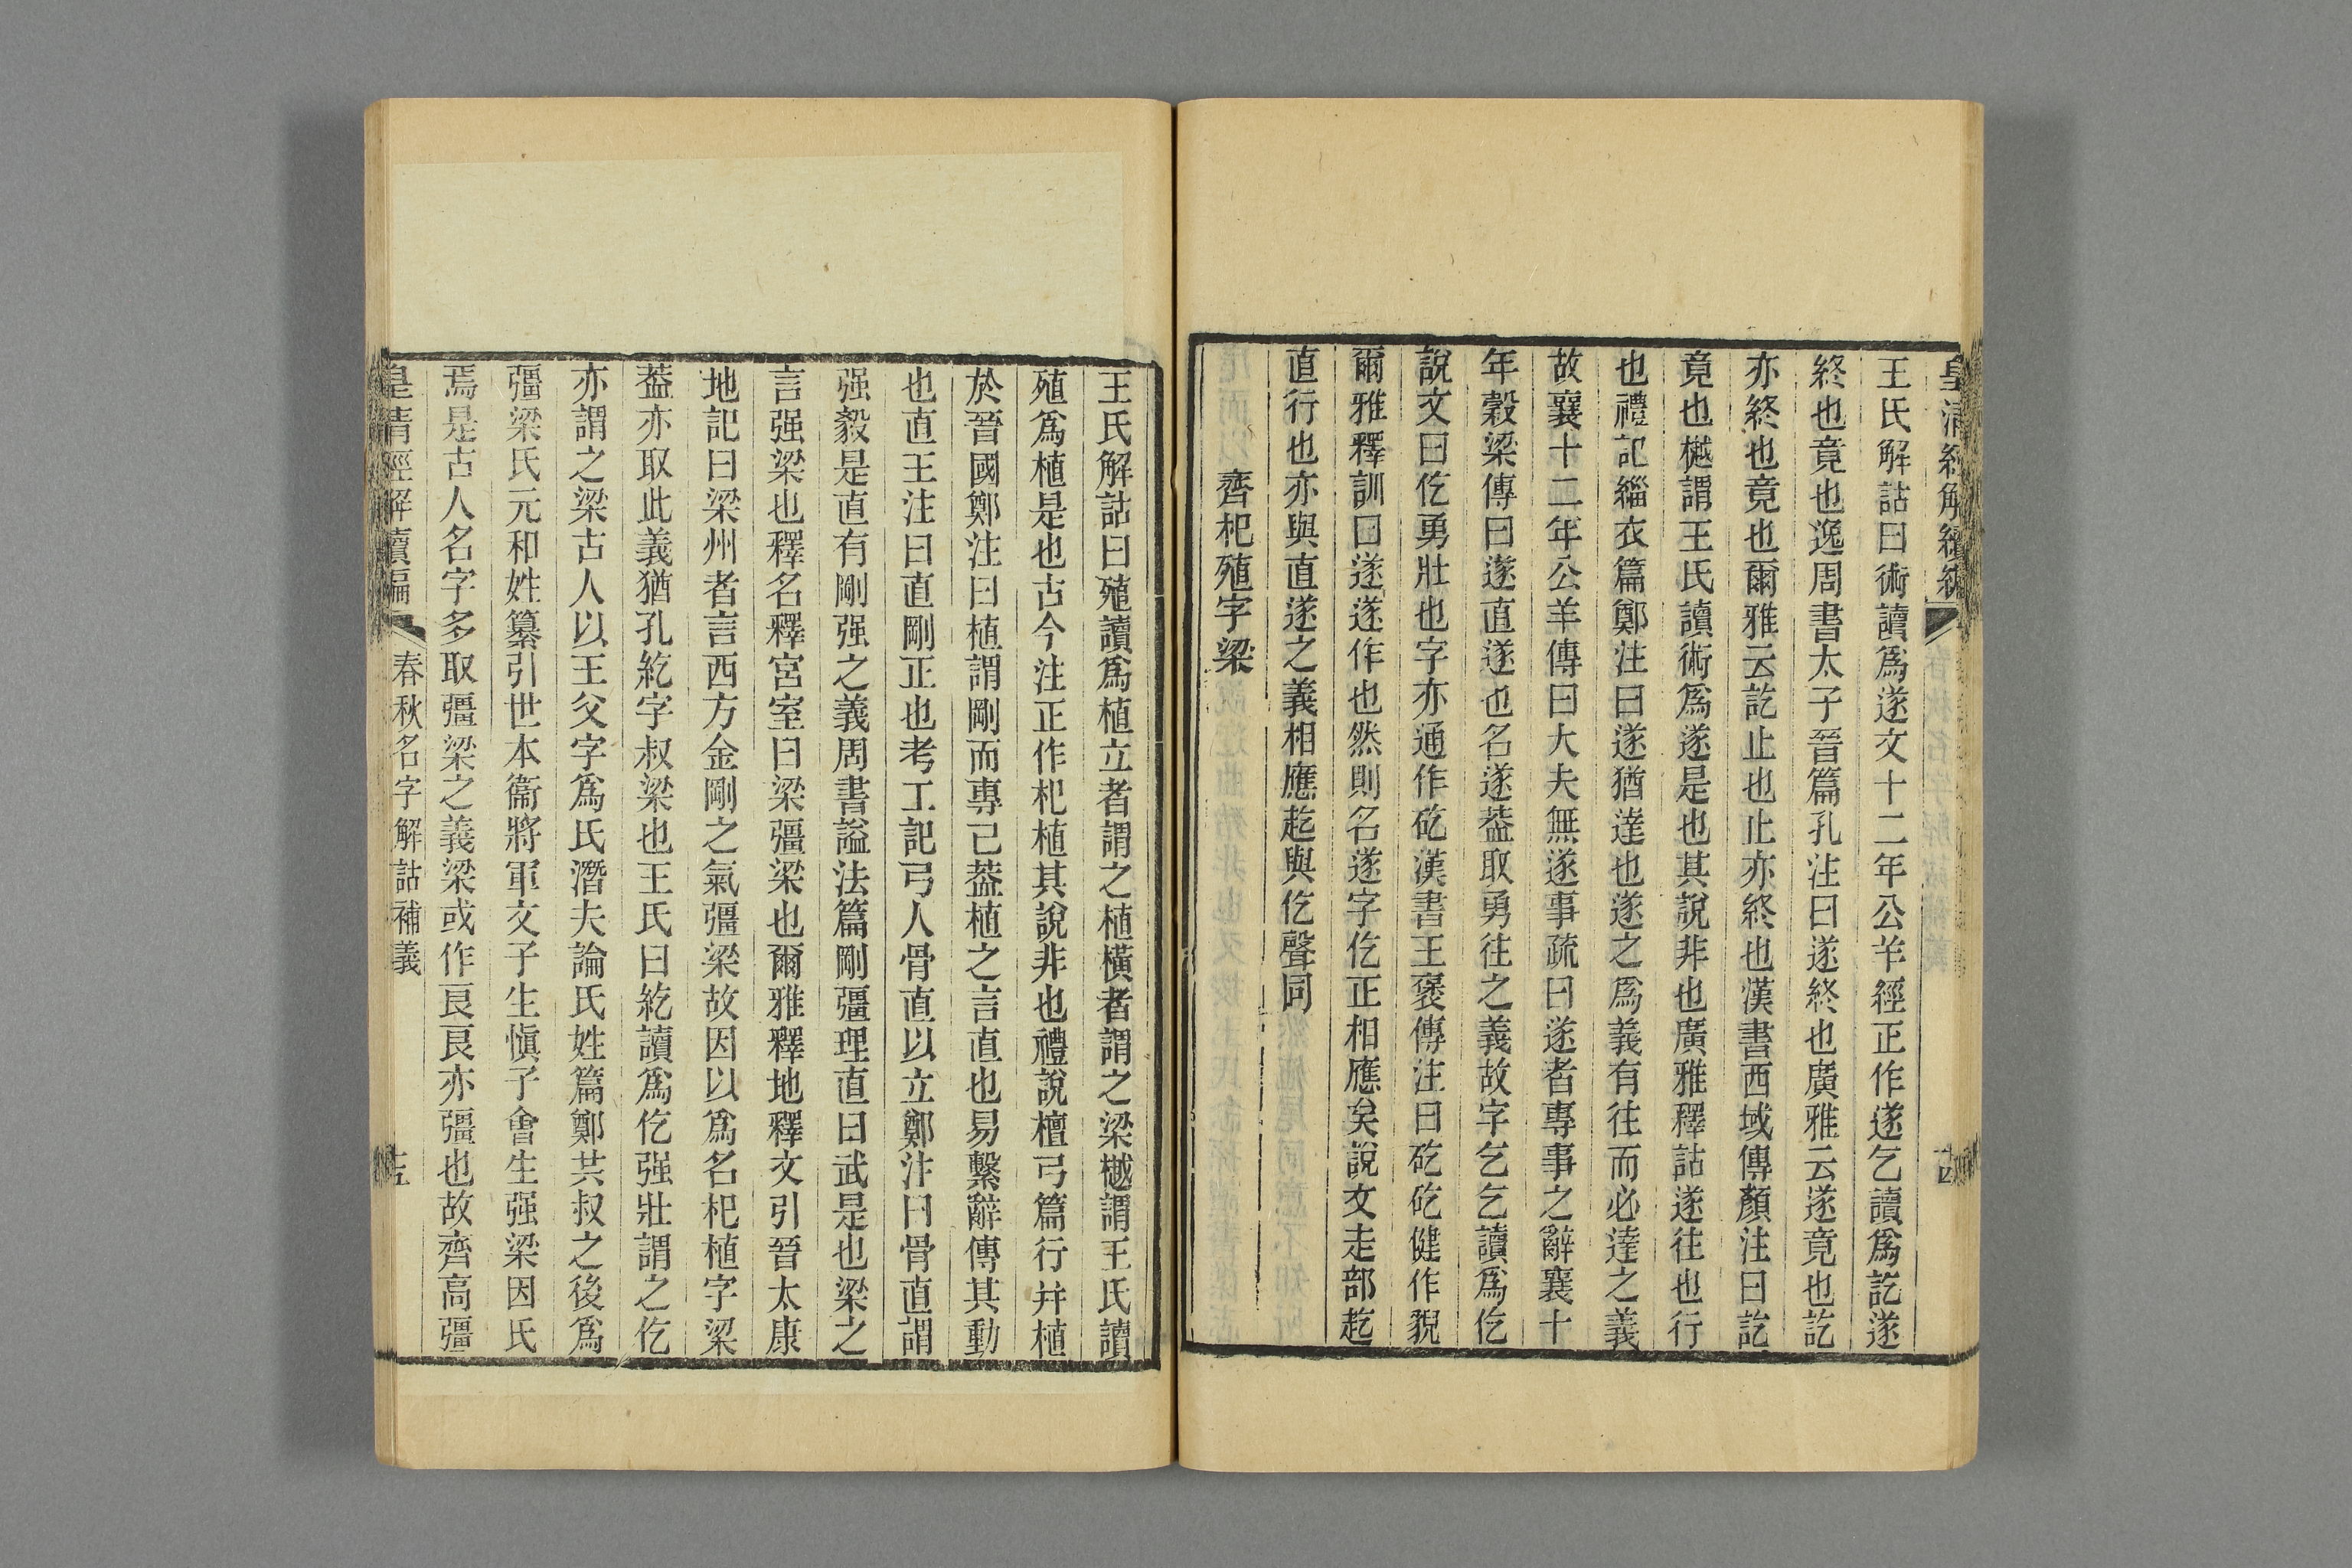 皇清經解續編
十四
王氏解詁曰術讀爲遂文十二年公羊經正作遂乞讀爲訖遂
終也竟也逸周書太子晉篇孔注曰遂終也廣雅云遂竟也訖
亦終也竟也爾雅云訖止也止亦終也漢書西域傳顏注曰訖
竟也樾謂王氏讀術爲遂是也其說非也廣雅釋詁遂往也行
也禮記緇衣篇鄭注曰遂猶達也遂之爲義有往而必達之義
故襄十二年公羊傳曰大夫無遂事疏曰遂者專事之辭襄十
年穀梁傳曰遂直遂也名遂葢取勇往之義故字乞乞讀爲仡
說文曰仡勇壯也字亦通作矻漢書王褒傳注曰矻矻健作貌
爾雅釋訓曰遂遂作也然則名遂字仡正相應矣說文走部趌
直行也亦與直遂之義相應趌與仡聲同
齊杞殖字梁
王氏解詁曰殖讀爲植立者謂之植橫者謂之梁樾謂王氏讀
殖爲植是也古今注正作杞植其說非也禮說檀弓篇行幷植
於晉國鄭注曰植謂剛而專己葢植之言直也易繫辭傳其動
也直王注曰直剛正也考工記弓人骨直以立鄭注曰骨直謂
强毅是直有剛强之義周書謚法篇剛彊理直曰武是也梁之
言强梁也釋名釋宮室曰梁彊梁也爾雅釋地釋文引晉太康
地記曰梁州者言西方金剛之氣彊梁故因以爲名杞植字梁
葢亦取此義猶孔紇字叔梁也王氏曰紇讀爲仡强壯謂之仡
亦謂之梁古人以王父字爲氏潛夫論氏姓篇鄭共叔之後爲
彊梁氏元和姓纂引世本衞將軍文子生愼子會生强梁因氏
焉是古人名字多取彊梁之義梁或作良良亦彊也故齊高彊
皇清經解續編
春秋名字解詁補義
十五